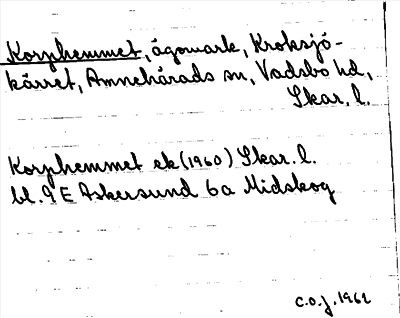 Korphemmet, ägomark, Kroksjö-
kärret, Amnehärads sn, Vadsbo hd,
Skar. l.
Korphemmet ek (1960) Skar. l.
bl. 9 E Askersund 6a Midskog
C.O.J. 1962